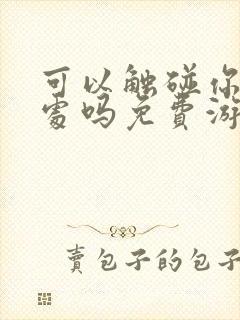 可以触碰你
处吗免费游
卖包子的包子